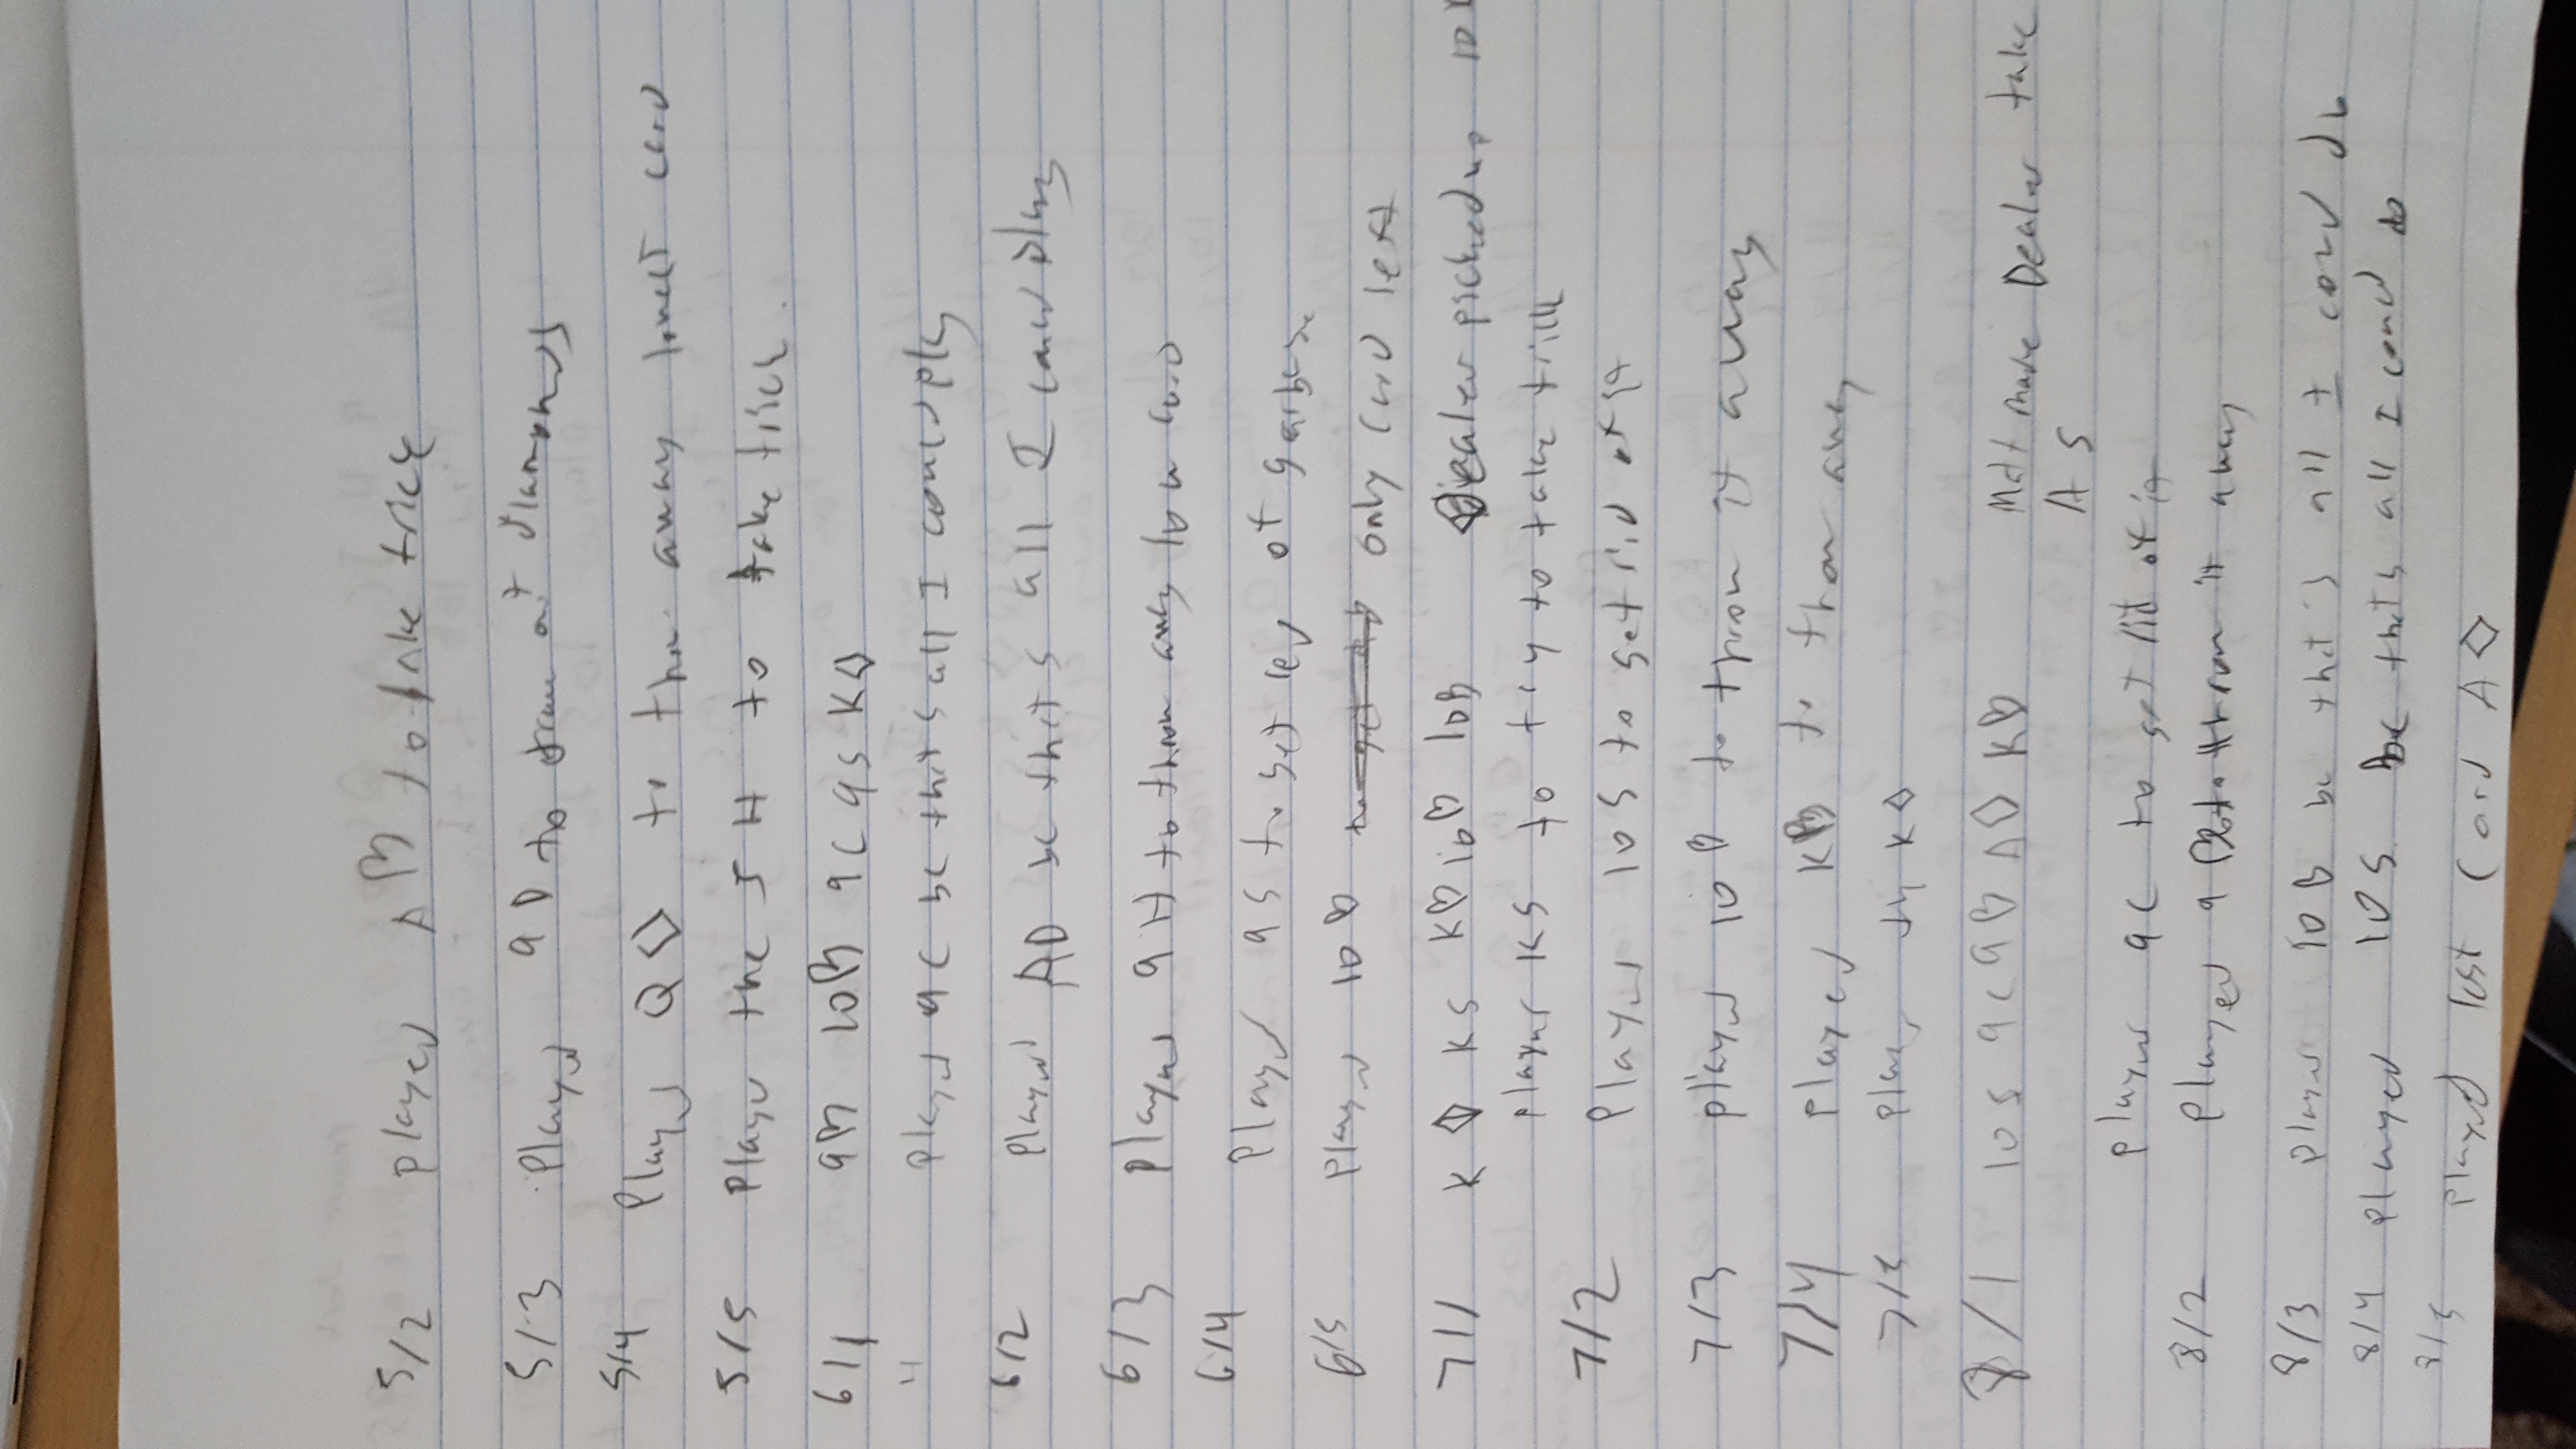 5/2 played A♡ to take trick
5/3 Played 9D to draw out diamonds
5/4 Played Q◇ to throw away lowest card
5/5 Played the J H to take trick.
6/1 9♡ 10♡ 9C 9S K◇
" played 9C bc that's all I could play
6/2 Played AD bc that's all I could play
6/3 Played 9H to throw away low card
6/4
Played 9S to get rid of garbage
6/5 Played 10♡ only card left
7/1 K◇ KS K♡ 10♡ 10♡ Dealer picked up 10
played KS to try to take trick
7/2 Played 10S to get rid of it
7/3 played 10♡ to throw it away
7/4 played K♡ to throw away
7/5 played K◇
8/1 10S 9C 9♡ A◇ K♡ Matt made Dealer take
A S
played 9C to get rid of it
8/2 Played 9♡ to throw it away
8/3 played 10♡ bc that's all I could do
8/4 played 10S bc that's all I could do
8/5 played last card A◇